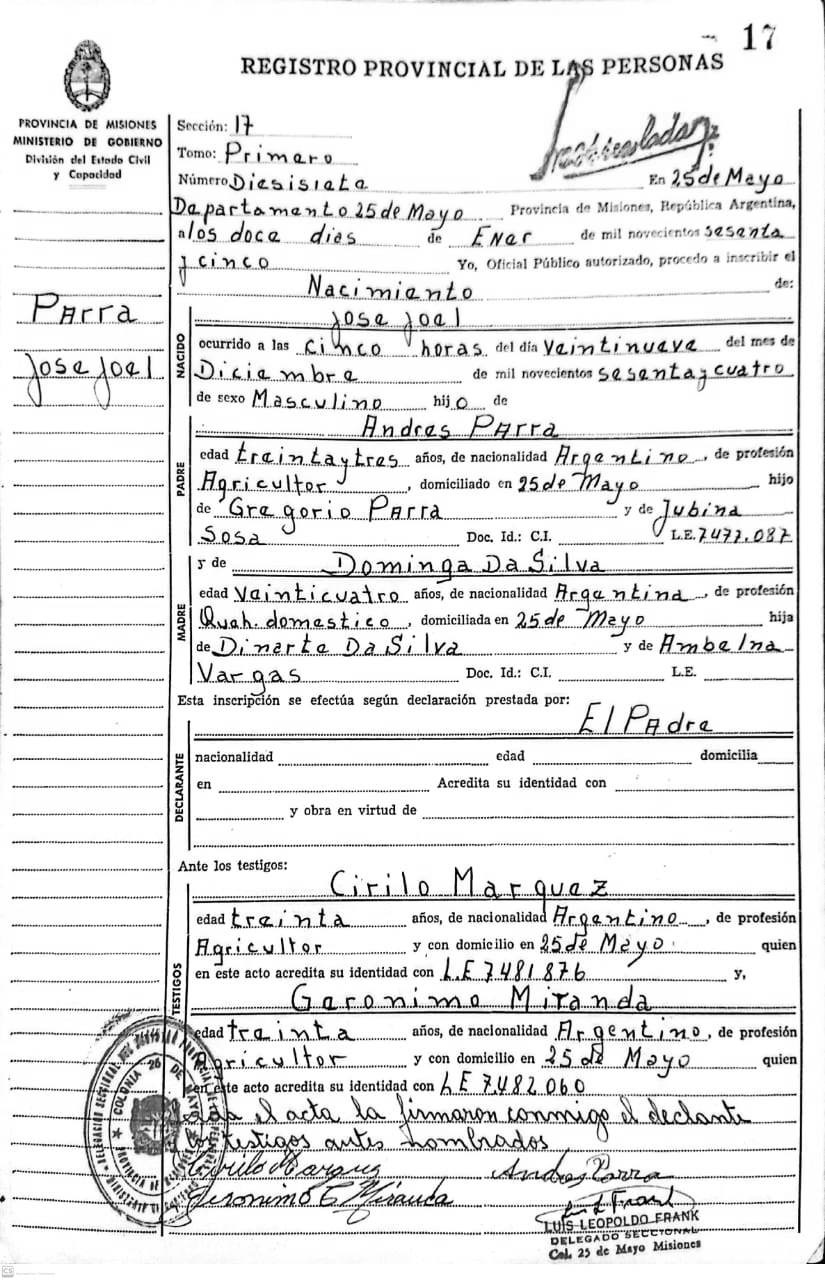 17
REGISTRO PROVINCIAL DE LAS PERSONAS
PROVINCIA DE MISIONES
MINISTERIO DE GOBIERNO
División del Estado Civil
y Capacidad
Sección: 17
Tomo: Primero
Número Diesisiete En 25 de Mayo
Departamento 25 de Mayo Provincia de Misiones, República Argentina,
a los doce dias de Ener de mil novecientos sesenta
y cinco Yo, Oficial Público autorizado, procedo a inscribir el
Nacimiento de:
Parra
Jose Joel
NACIDO
Jose Joel
ocurrido a las cinco horas del día veintinueve del mes de
Diciembre de mil novecientos sesenta y cuatro
de sexo Masculino hijo de
PADRE
Andres Parra
edad treinta y tres años, de nacionalidad Argentino, de profesión
Agricultor, domiciliado en 25 de Mayo hijo
de Gregorio Parra y de Jubina
Sosa Doc. Id.: C.I. L.E. 7477.087
MADRE
y de Dominga Da Silva
edad veinticuatro años, de nacionalidad Argentina, de profesión
Queh. domestico, domiciliada en 25 de Mayo hija
de Dinarte Da Silva y de Ambelna
Vargas Doc. Id.: C.I. L.E.
Esta inscripción se efectúa según declaración prestada por:
El Padre
DECLARANTE
nacionalidad edad domicilia
en Acredita su identidad con
y obra en virtud de
Ante los testigos:
TESTIGOS
Cirilo Marquez
edad treinta años, de nacionalidad Argentino, de profesión
Agricultor y con domicilio en 25 de Mayo quien
en este acto acredita su identidad con L.E 7481876 y,
Geronimo Miranda
edad treinta años, de nacionalidad Argentino, de profesión
Agricultor y con domicilio en 25 de Mayo quien
en este acto acredita su identidad con LE 7.482.060
el acta la firmaron conmigo el declante
los testigos antes nombrados
Cirilo Marquez Andres Parra
Jeronimo C Miranda
LUIS LEOPOLDO FRANK
DELEGADO SECCIONAL
Col. 25 de Mayo Misiones
COLONIA 25 DE MAYO
CS